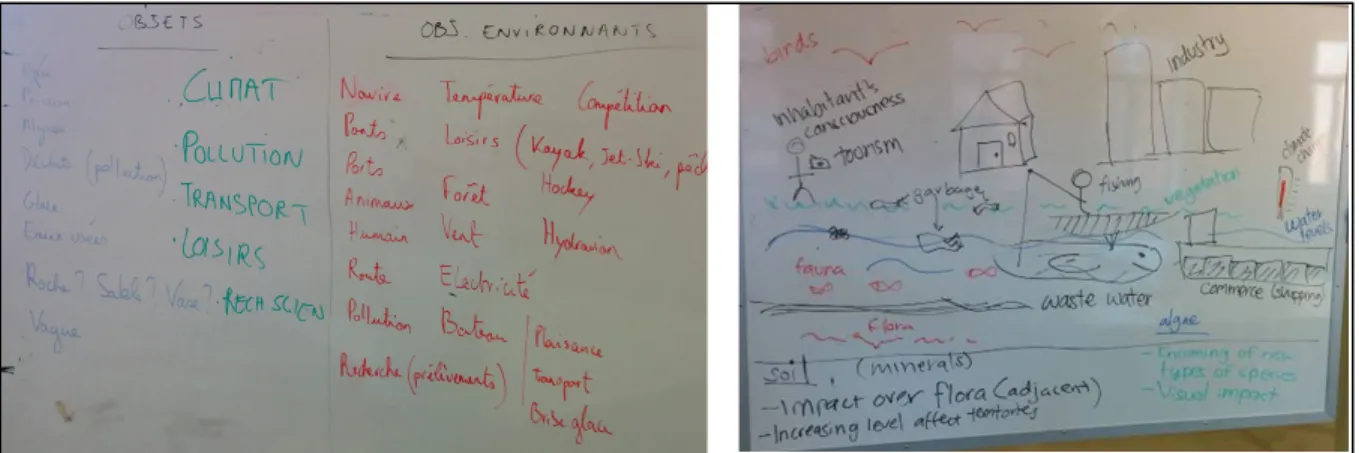 OBJETS
Poisson
Algues
Déchets (pollution)
Glace
Eaux usées
Roche? Sable? Vase?
Vague
· CLIMAT
· POLLUTION
· TRANSPORT
· LOISIRS
· RECH SCIEN
OBJ. ENVIRONNANTS
Navire Température Compétition
Ponts Loisirs (Kayak, Jet-Ski, pêch
Ports Hockey
Animaux Forêt
Humain Vent Hydravion
Route Electricité
Pollution Bateau Plaisance
Transport
Recherche (prélèvements)
Brise glace
birds
industry
inhabitant's
consciousness
tourism
fishing
garbage
vegetation
climate
water
levels
fauna
waste water
commerce (shipping)
Flora
algae
soil, (minerals)
- Incoming of new
types of species
- Visual impact
- Impact over flora (adjacent)
- Increasing level affect territories